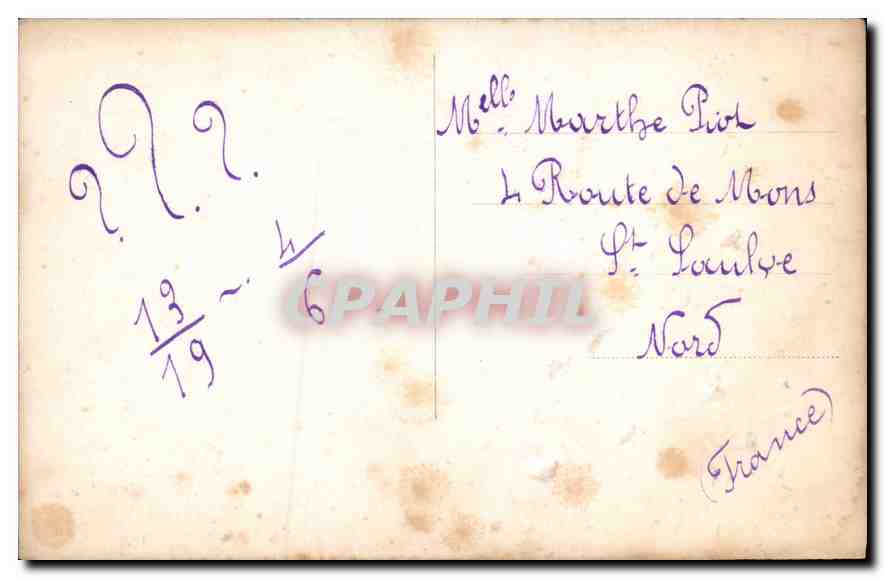 ? ? ?
13/19 ~ 4/6
Melle Marthe Piot
4 Route de Mons
St. Saulve
Nord
(France)
CPAPHIL